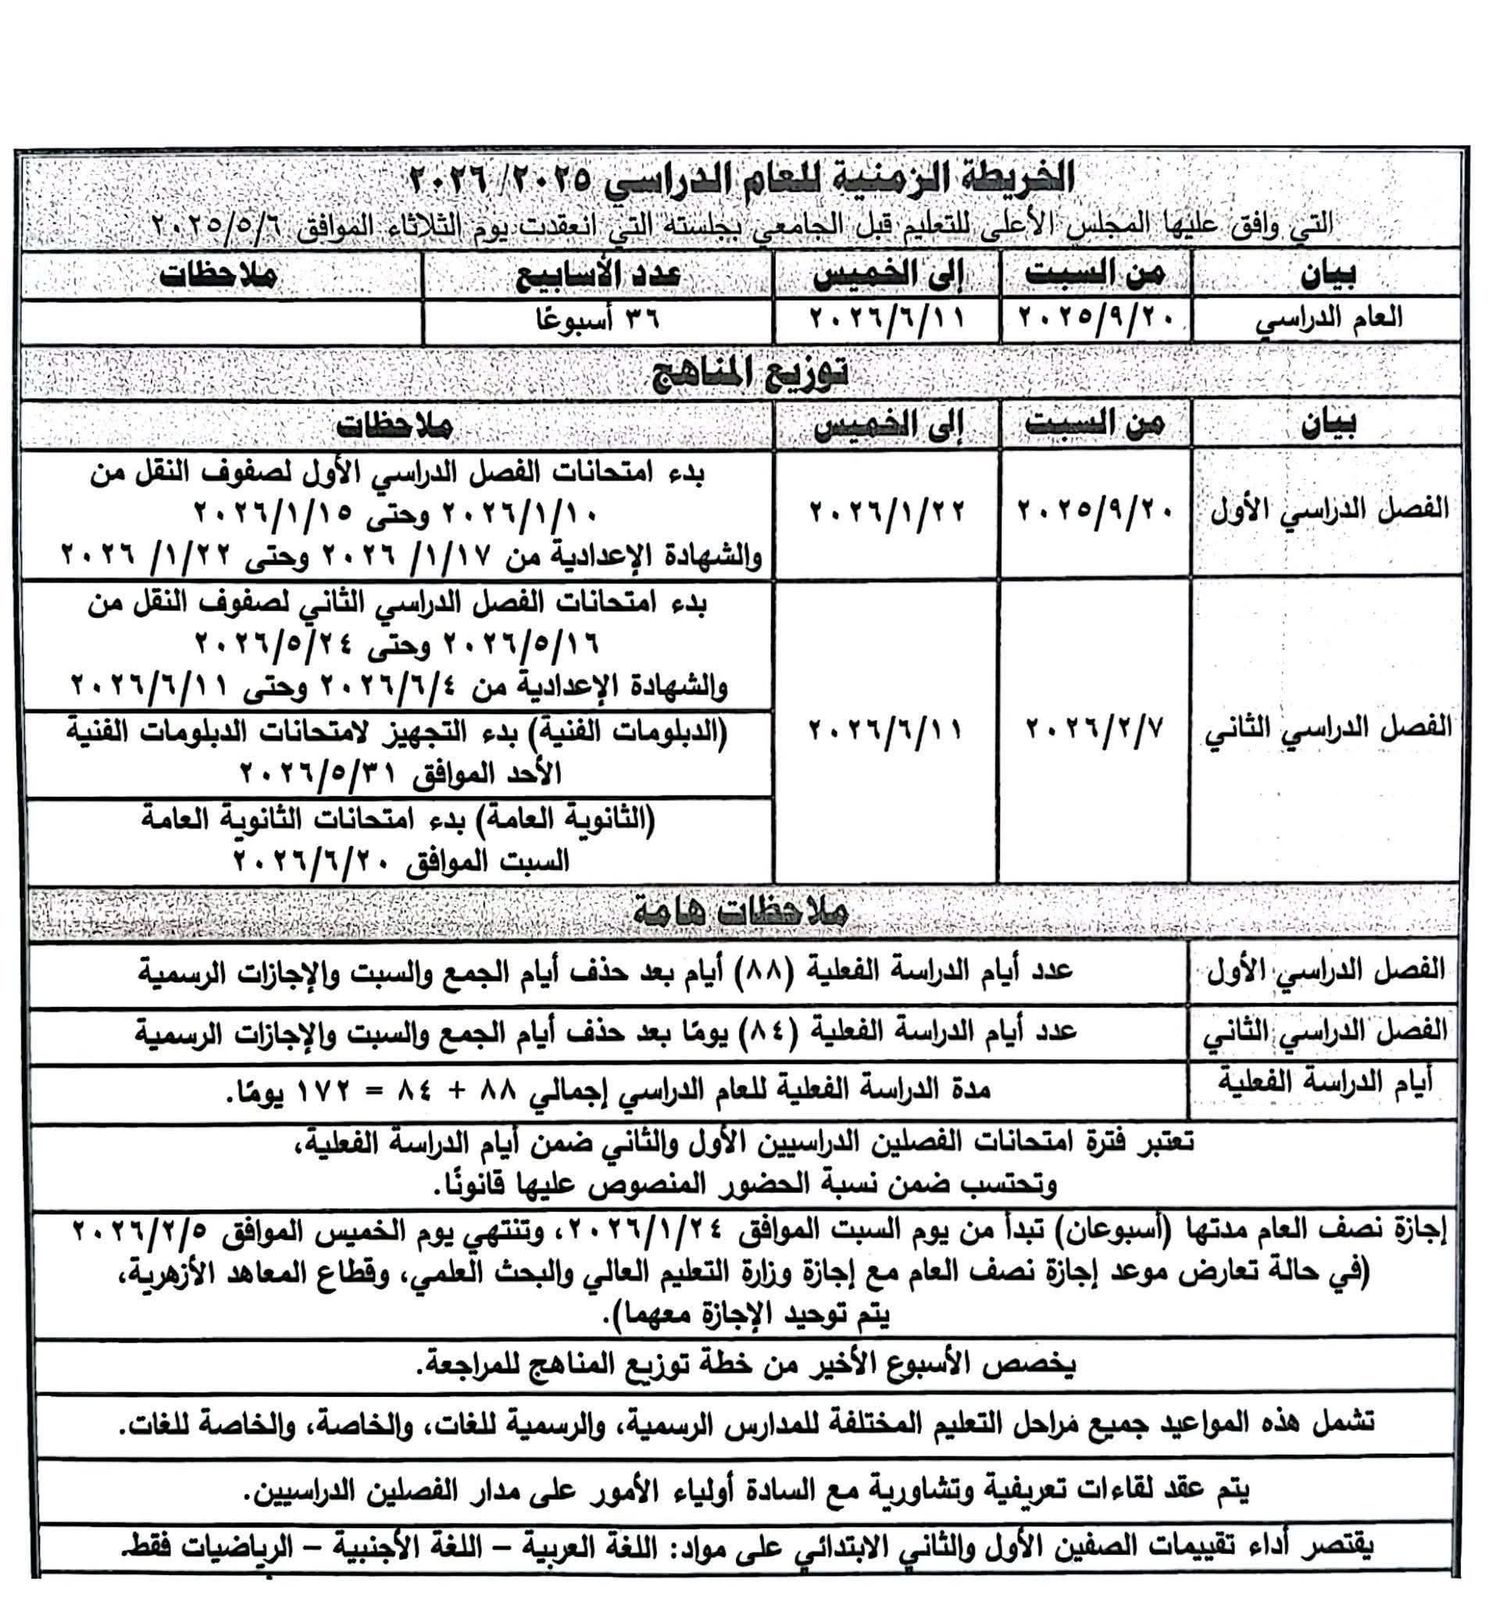 الخريطة الزمنية للعام الدراسي ٢٠٢٥/ ٢٠٢٦
التي وافق عليها المجلس الأعلى للتعليم قبل الجامعي بجلسته التي انعقدت يوم الثلاثاء الموافق ٢٠٢٥/٥/٦
بيان من السبت إلى الخميس عدد الأسابيع ملاحظات
العام الدراسي ٢٠٢٥/٩/٢٠ ٢٠٢٦/٦/١١ ٣٦ أسبوعًا
توزيع المناهج
بيان من السبت إلى الخميس ملاحظات
الفصل الدراسي الأول ٢٠٢٥/٩/٢٠ ٢٠٢٦/١/٢٢
بدء امتحانات الفصل الدراسي الأول لصفوف النقل من
٢٠٢٦/١/١٠ وحتى ٢٠٢٦/١/١٥
والشهادة الإعدادية من ١/١٧/ ٢٠٢٦ وحتى ١/٢٢/ ٢٠٢٦
الفصل الدراسي الثاني ٢٠٢٦/٢/٧ ٢٠٢٦/٦/١١
بدء امتحانات الفصل الدراسي الثاني لصفوف النقل من
٢٠٢٦/٥/١٦ وحتى ٢٠٢٦/٥/٢٤
والشهادة الإعدادية من ٢٠٢٦/٦/٤ وحتى ٢٠٢٦/٦/١١
(الدبلومات الفنية) بدء التجهيز لامتحانات الدبلومات الفنية
الأحد الموافق ٢٠٢٦/٥/٣١
(الثانوية العامة) بدء امتحانات الثانوية العامة
السبت الموافق ٢٠٢٦/٦/٢٠
ملاحظات هامة
الفصل الدراسي الأول عدد أيام الدراسة الفعلية (٨٨) أيام بعد حذف أيام الجمع والسبت والإجازات الرسمية
الفصل الدراسي الثاني عدد أيام الدراسة الفعلية (٨٤) يومًا بعد حذف أيام الجمع والسبت والإجازات الرسمية
أيام الدراسة الفعلية مدة الدراسة الفعلية للعام الدراسي إجمالي ٨٨ + ٨٤ = ١٧٢ يومًا.
تعتبر فترة امتحانات الفصلين الدراسيين الأول والثاني ضمن أيام الدراسة الفعلية،
وتحتسب ضمن نسبة الحضور المنصوص عليها قانونًا.
إجازة نصف العام مدتها (أسبوعان) تبدأ من يوم السبت الموافق ٢٠٢٦/١/٢٤، وتنتهي يوم الخميس الموافق ٢٠٢٦/٢/٥
(في حالة تعارض موعد إجازة نصف العام مع إجازة وزارة التعليم العالي والبحث العلمي، وقطاع المعاهد الأزهرية،
يتم توحيد الإجازة معهما).
يخصص الأسبوع الأخير من خطة توزيع المناهج للمراجعة.
تشمل هذه المواعيد جميع مراحل التعليم المختلفة للمدارس الرسمية، والرسمية للغات، والخاصة، والخاصة للغات.
يتم عقد لقاءات تعريفية وتشاورية مع السادة أولياء الأمور على مدار الفصلين الدراسيين.
يقتصر أداء تقييمات الصفين الأول والثاني الابتدائي على مواد: اللغة العربية – اللغة الأجنبية – الرياضيات فقط.